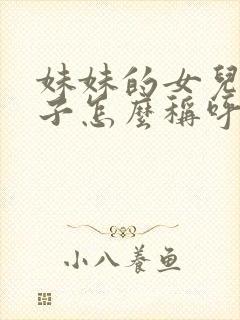 妹妹的女兒
子怎麼稱呼
小八養鱼